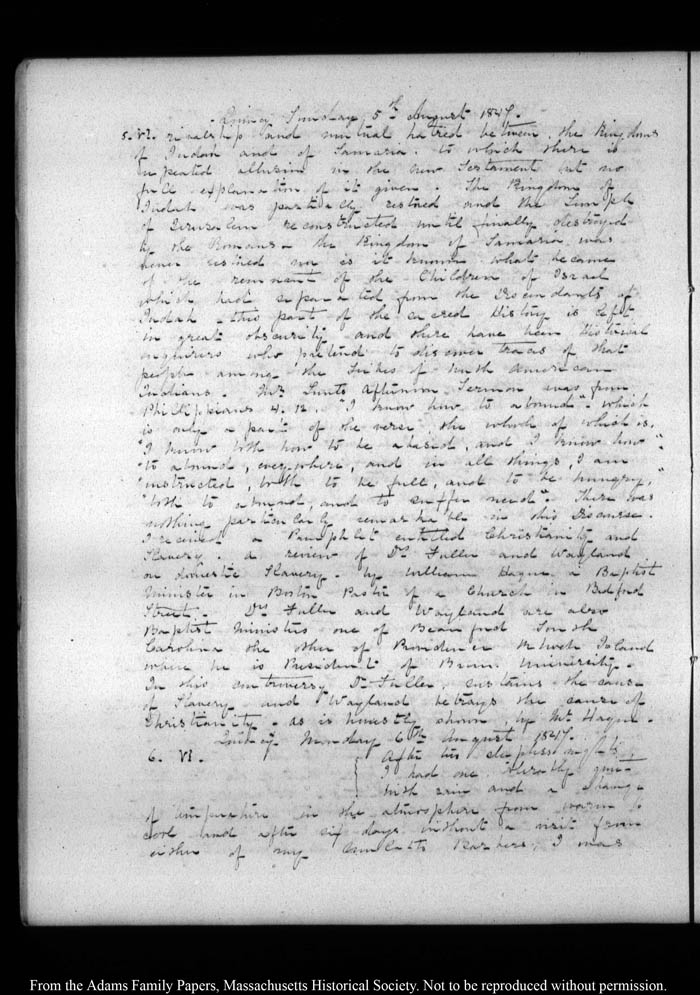 Quincy Sunday 5th August 1847.
5. VI. rivalship and mutual hatred between the Kingdoms
of Judah and of Samaria to which there is
repeated allusion in the New Testament but no
full explanation of it given. The Kingdom of
Judah was partially restored and the Temple
of Jerusalem reconstructed until finally destroyed
by the Romans - the Kingdom of Samaria was
never restored nor is it known what became
of the remnant of the Children of Israel
which had separated from the Descendants of
Judah - this part of the sacred History is left
in great obscurity and there have been Historical
enquirers who pretend to discover traces of that
people among the Tribes of North American
Indians. Mr Lunts Afternoon Sermon was from
Philippians 4. 12. "I know how to abound" - which
is only a part of the verse, the whole of which is,
"I know both how to be abased, and I know how"
"to abound, every where, and in all things, I am
"instructed, both to be full, and to be hungry,"
"both to abound, and to suffer need". There was
nothing particularly remarkable in this Discourse.
I received a Pamphlet entitled Christianity and
Slavery. a review of Drs Fuller and Wayland
on domestic Slavery - by William Hague, a Baptist
Minister in Boston Pastor of a Church in Bedford
Street. Drs Fuller and Wayland are also
Baptist Ministers one of Beauford South
Carolina the other of Providence Rhode Island
where he is President of Brown University.
In this controversy Dr Fuller, sustains the cause
of Slavery and Wayland betrays the cause of
Christianity - as is honestly shown by Mr Hague.
Quincy Monday 6th August 1847.
6. VI. After two sleepless nights,
I had one tolerably quiet
with rain and a change
of temperature in the atmosphere from warm to
cool and after six days without a visit from
either of my Barbers, I was
From the Adams Family Papers, Massachusetts Historical Society. Not to be reproduced without permission.